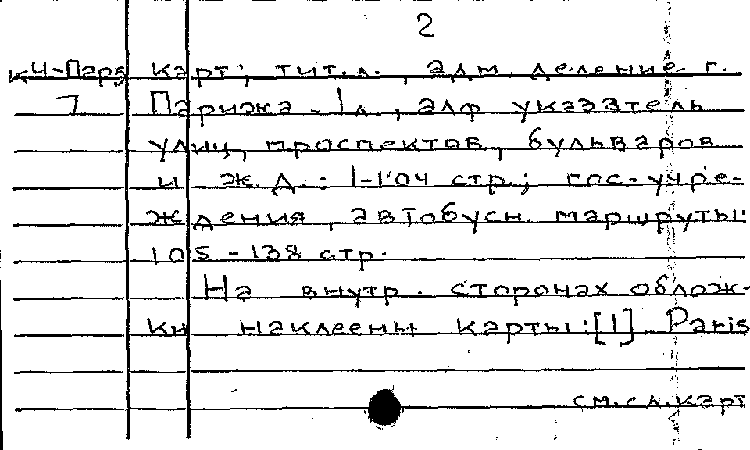 2
К4-Пари карт; тит.л., адм. деление г.
7 Парижа - 1л., алф указатель
улиц, проспектов, бульваров
и ж.д.: 1-104 стр.; гос-учре-
ждения, автобусн. маршруты:
105 - 138 стр.
На внутр. сторонах облож-
ки наклеены карты: [1] Paris
см.сл.карт